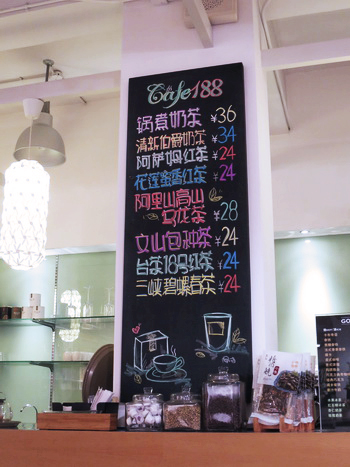 Cafe188
锅煮奶茶 ¥36
清新伯爵奶茶 ¥34
阿萨姆红茶 ¥24
花莲蜜香红茶 ¥24
阿里山高山
乌龙茶 ¥28
文山包种茶 ¥24
台茶18号红茶 ¥24
三峡碧螺春茶 ¥24
GO